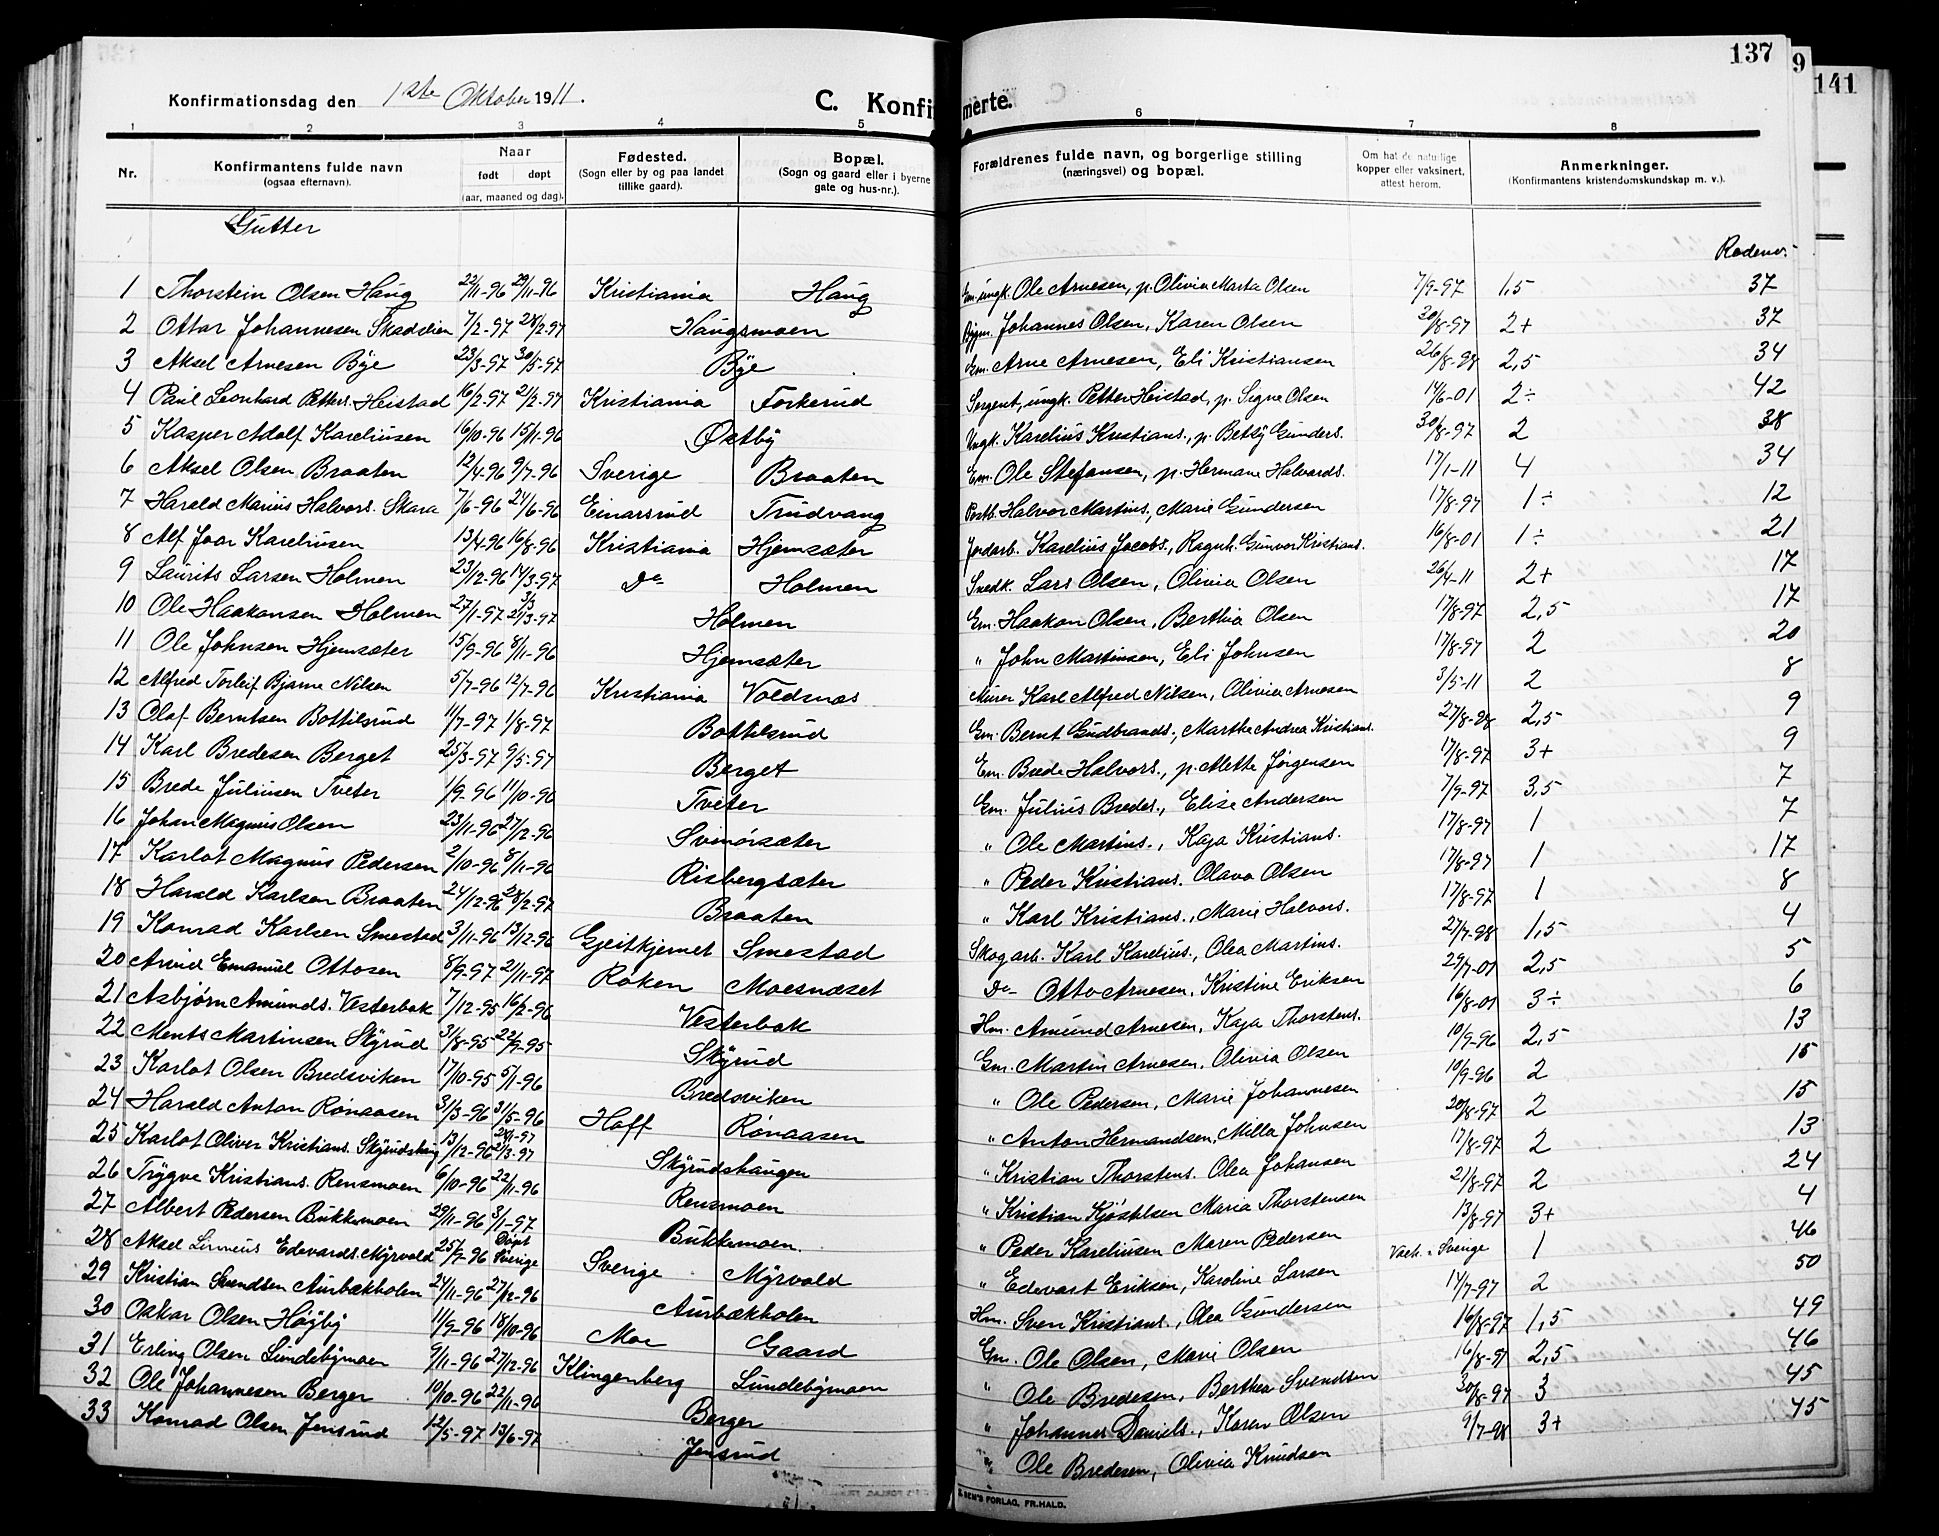 137
9
141
Konfirmationsdag den 1ste Oktober 1911.
C. Konfir merte.
1 2 3 4 5 6 7 8
Nr. Konfirmantens fulde navn (ogsaa efternavn). Naar født døpt (aar, maaned og dag). Fødested. (Sogn eller by og paa landet tillike gaard). Bopæl. (Sogn og gaard eller i byerne gate og hus-nr.). Forældrenes fulde navn, og borgerlige stilling (næringsvei) og bopæl. Om hat de naturlige kopper eller vaksinert, attest herom. Anmerkninger. (Konfirmantens kristendomskundskap m. v.).
Gutter
Rodenr.
1 Thorstein Olsen Haug 22/11-96 29/11-96 Kristiania Haug Em. ungk. Ole Arnesen, p. Olivia Marta Olsen 7/9-97 1,5 37
2 Ottar Johannesen Skadslien 7/2-97 28/2-97 Haugsmoen Johannes Olsen, Karen Olsen 20/8-97 2+ 37
3 Aksel Arnesen Bye 23/3-97 30/5-97 Bye Gm. Arne Arnesen, Eli Kristiansen 26/8-98 2,5 34
4 Paul Leonhard Petters. Heistad 16/2-97 21/2-97 Kristiania Forkerud Sergent, ungk. Petter Heistad, p. Signe Olsen 14/6-01 2÷ 42
5 Kasper Adolf Kareliusen 16/10-96 15/11-96 Østby Ungk. Karelius Kristians., p. Betsy Gunders. 30/8-97 2 38
6 Aksel Olsen Braaten 12/4-96 9/7-96 Sverige Braaten Em. Ole Stefansen, p. Hermane Halvards. 17/1-11 4 34
7 Harald Marius Halvors. Skara 7/6-96 24/6-96 Einarsrud Trudvang Postb. Halvor Martins., Marie Gundersen 17/8-97 1÷ 12
8 Alf Joar Kareliusen 13/4-96 16/8-96 Kristiania Hjemsæter Jordarb. Karelius Jacobs., Ragnh. Gunvor Kristians. 16/8-01 1÷ 21
9 Laurits Larsen Holmen 23/12-96 14/3-97 Do Holmen Snedk. Lars Olsen, Olivia Olsen 26/4-11 2+ 17
10 Ole Haakonsen Holmen 27/1-97 3/3 21/3-97 Holmen Gm. Haakon Olsen, Berthia Olsen 17/8-97 2,5 17
11 Ole Johnsen Hjemsæter 15/9-96 8/11-96 Hjemsæter " John Martinsen, Eli Johnsen 17/8-97 2 20
12 Alfred Torleif Bjarne Nilsen 5/7-96 12/7-96 Kristiania Voldsnæs Murer Karl Alfred Nilsen, Olivia Arnesen 3/5-11 2 8
13 Olaf Berntsen Bottilsrud 11/7-97 1/8-97 Bottilsrud Gm. Bernt Gudbrands., Marthe Andrea Kristians. 27/8-98 2,5 9
14 Karl Bredesen Berget 25/3-97 9/5-97 Berget Em. Brede Halvors., p. Mette Jørgensen 17/8-97 3+ 9
15 Brede Juliusen Tveter 1/9-96 11/10-96 Tveter Gm. Julius Bredes., Elise Andersen 7/9-97 3,5 7
16 Johan Magnus Olsen 23/11-96 27/12-96 Svinørsæter " Ole Martins., Kaja Kristians. 17/8-97 1 7
17 Karlot Magnus Pedersen 2/10-96 8/11-96 Risbergsæter " Peder Kristians. Olava Olsen 17/8-97 1 17
18 Harald Karlsen Braaten 24/12-96 28/2-97 Braaten " Karl Kristians., Marie Halvors. 17/8-97 1 8
19 Konrad Karlsen Smestad 3/11-96 13/12-96 Gjeitkjernet Smestad Skogarb. Karl Karelius., Olea Martins. 27/7-98 1,5 4
20 Arvid Emanuel Ottosen 8/9-97 21/11-97 Røken Moesnæset Do Otto Arnesen, Kristine Eriksen 29/7-01 2,5 5
21 Asbjørn Amunds. Vesterbak 7/12-95 16/2-96 Vesterbak Hm. Amund Arnesen, Kaja Thorstens. 16/8-01 3÷ 6
22 Ments Martinsen Skyrud 31/8-95 22/9-95 Skyrud Gm. Martin Arnesen, Olivia Olsen 10/9-96 2,5 13
23 Karlot Olsen Bredsviken 17/10-95 5/1-96 Bredsviken " Ole Pedersen, Marie Johannesen 10/9-96 2 15
24 Harald Anton Rønaasen 31/3-96 31/5-96 Hoff Rønaasen " Anton Hermandsen, Milla Johnsen 20/8-97 2 15
25 Karlot Oliver Kristians. Skyrudshaug 13/12-96 28/1-97 21/3-97 Skyrudshaugen " Kristian Thorstens. Olea Johansen 17/8-97 2 13
26 Trygve Kristians. Rensmoen 6/10-96 22/11-96 Rensmoen " Kristian Kjøstelsen Maria Thorstensen 21/8-97 2 24
27 Albert Pedersen Bukkemoen 29/11-96 3/1-97 Bukkemoen " Peder Kareliusen Maren Pedersen 13/8-97 3+ 4
28 Aksel Linneus Edevards. Myrvold 25/7-96 Døpt Sverige Sverige Myrvold " Edevart Eriksen, Karoline Larsen Vack. i Sverige 1 46
29 Kristian Svendsen Aurbækholen 24/11-96 27/12-96 Aurbækholen Hm. Sven Kristians., Olea Gundersen 14/7-97 2 50
30 Oskar Olsen Høgby 11/9-96 18/10-96 Moe Gaard Gm. Ole Olsen, Marie Olsen 16/8-97 1,5 49
31 Erling Olsen Lundebymoen 9/11-96 27/12-96 Klingenberg Lundebymoen " Ole Bredesen, Berthea Svendsen 16/8-97 2,5 46
32 Ole Johannesen Berger 10/10-96 22/11-96 Berger " Johannes Daniels., Karen Olsen 30/8-97 3 45
33 Konrad Olsen Jensrud 12/5-97 13/6-97 Jensrud " Ole Bredesen, Olivia Knudsen 9/7-98 3+ 45
SEN'S FORLAG, FR.HALD.